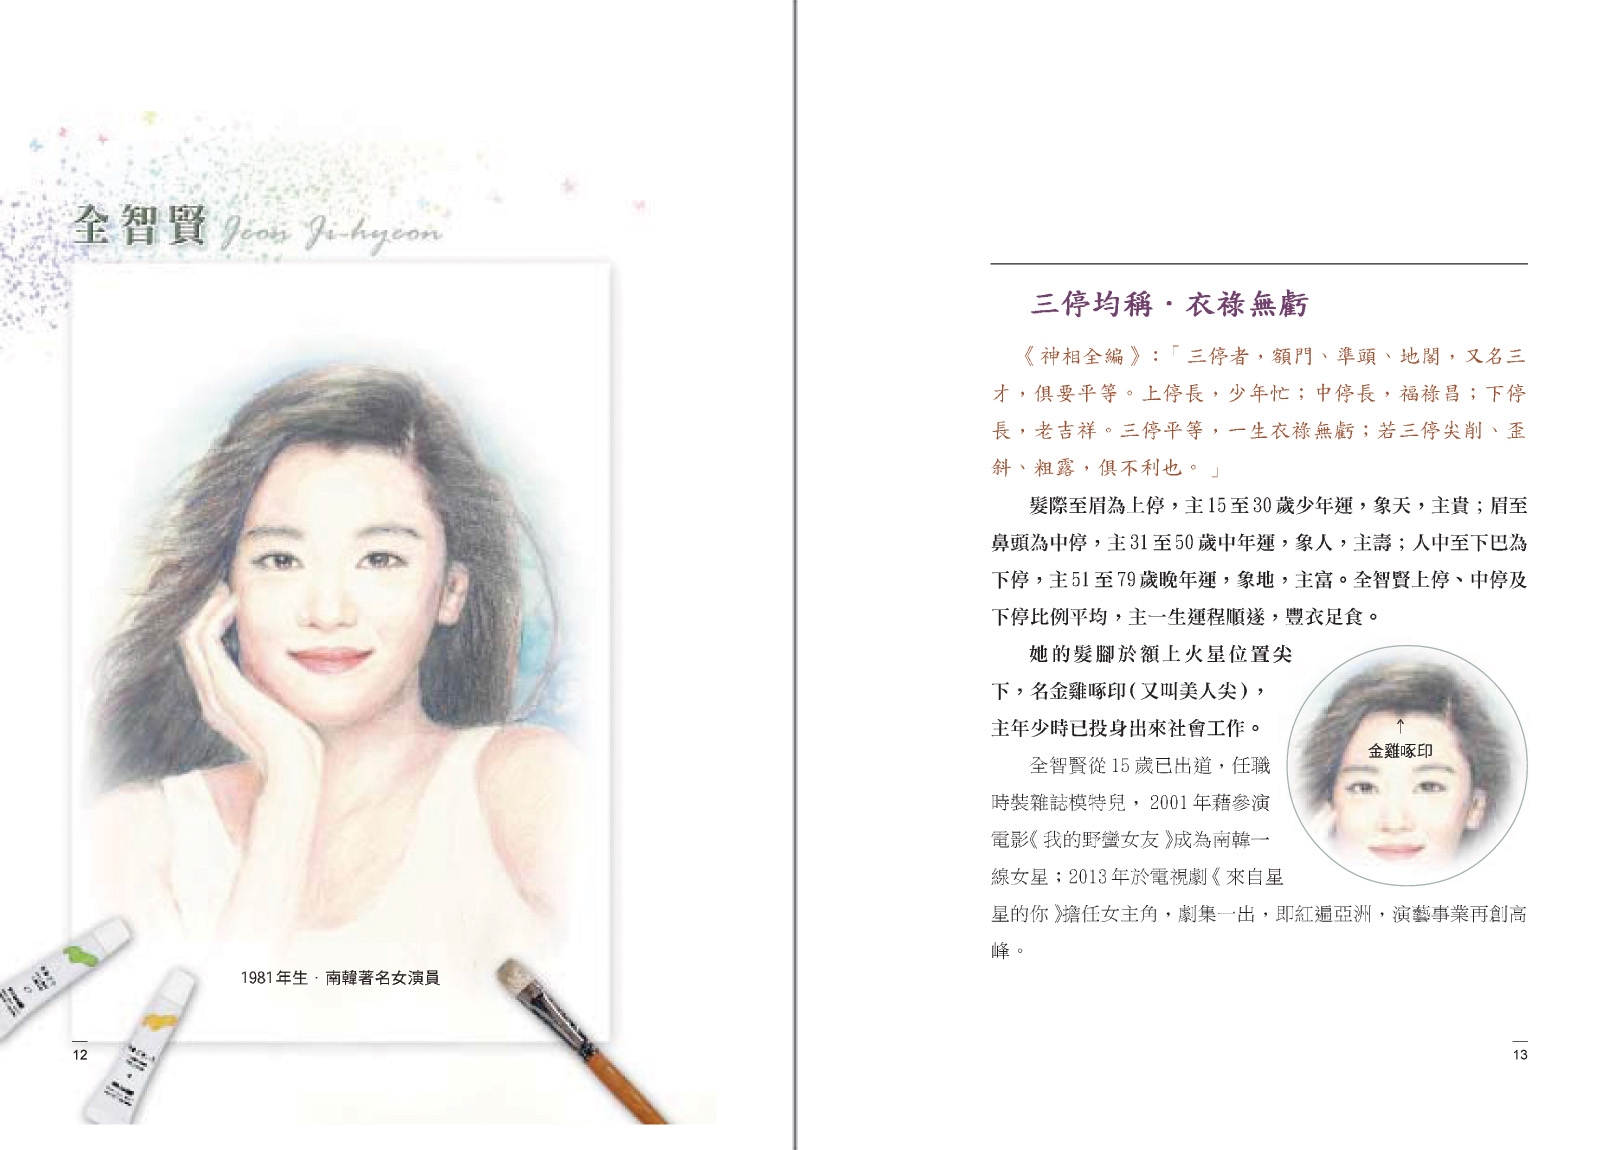 全智賢 Jeon Ji-hyeon
1981年生．南韓著名女演員
12
三停均稱．衣祿無虧
《神相全編》：「三停者，額門、準頭、地閣，又名三
才，俱要平等。上停長，少年忙；中停長，福祿昌；下停
長，老吉祥。三停平等，一生衣祿無虧；若三停尖削、歪
斜、粗露，俱不利也。」
髮際至眉為上停，主15至30歲少年運，象天，主貴；眉至
鼻頭為中停，主31至50歲中年運，象人，主壽；人中至下巴為
下停，主51至79歲晚年運，象地，主富。全智賢上停、中停及
下停比例平均，主一生運程順遂，豐衣足食。
她的髮腳於額上火星位置尖
下，名金雞啄印(又叫美人尖)，
主年少時已投身出來社會工作。
全智賢從15歲已出道，任職
時裝雜誌模特兒，2001年藉參演
電影《我的野蠻女友》成為南韓一
線女星；2013年於電視劇《來自星
星的你》擔任女主角，劇集一出，即紅遍亞洲，演藝事業再創高
峰。
↑
金雞啄印
13